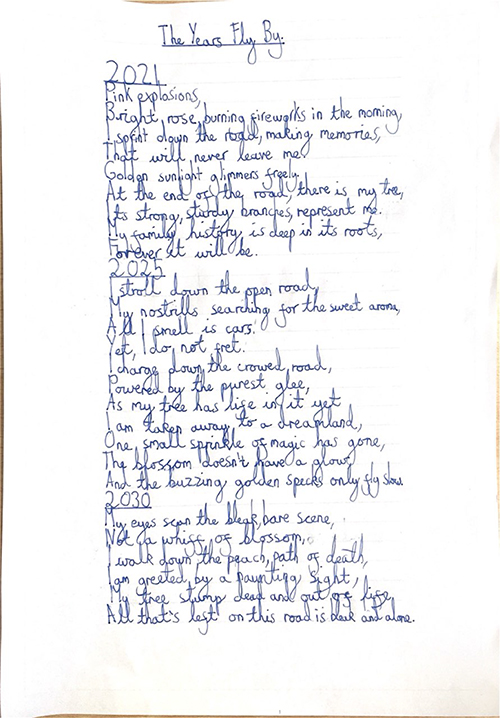 The Years Fly By:
2021
Pink explosions,
Bright, rose, burning fireworks in the morning,
I sprint down the road, making memories,
That will never leave me.
Golden sunlight glimmers freely.
At the end of the road, there is my tree,
Its strong, sturdy branches, represent me.
My family history is deep in its roots,
Forever it will be.
2025
I stroll down the open road,
My nostrills searching for the sweet aroma,
All I smell is cars.
Yet, I do not fret.
I charge down the crowed road,
Powered by the purest glee,
As my tree has life in it yet
I am taken away, to a dreamland,
One small sprinkle of magic has gone,
The blossom doesn't have a glow,
And the buzzing golden specks only fly slow.
2030
My eyes scan the bleak, bare scene,
Not a whiff of blossom,
I walk down the peach, path of death,
I am greeted by a haunting sight,
My tree stump dead and out of life,
All that's left on this road is bleak and alone.